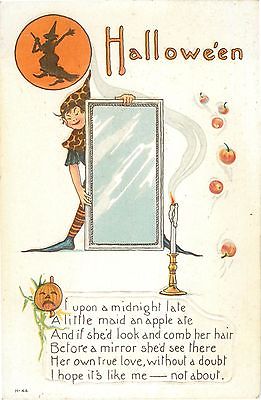 Hallowe'en
If upon a midnight late
A little maid an apple ate
And if she'd look and comb her hair
Before a mirror she'd see there
Her own true love, without a doubt
I hope it's like me — not about.